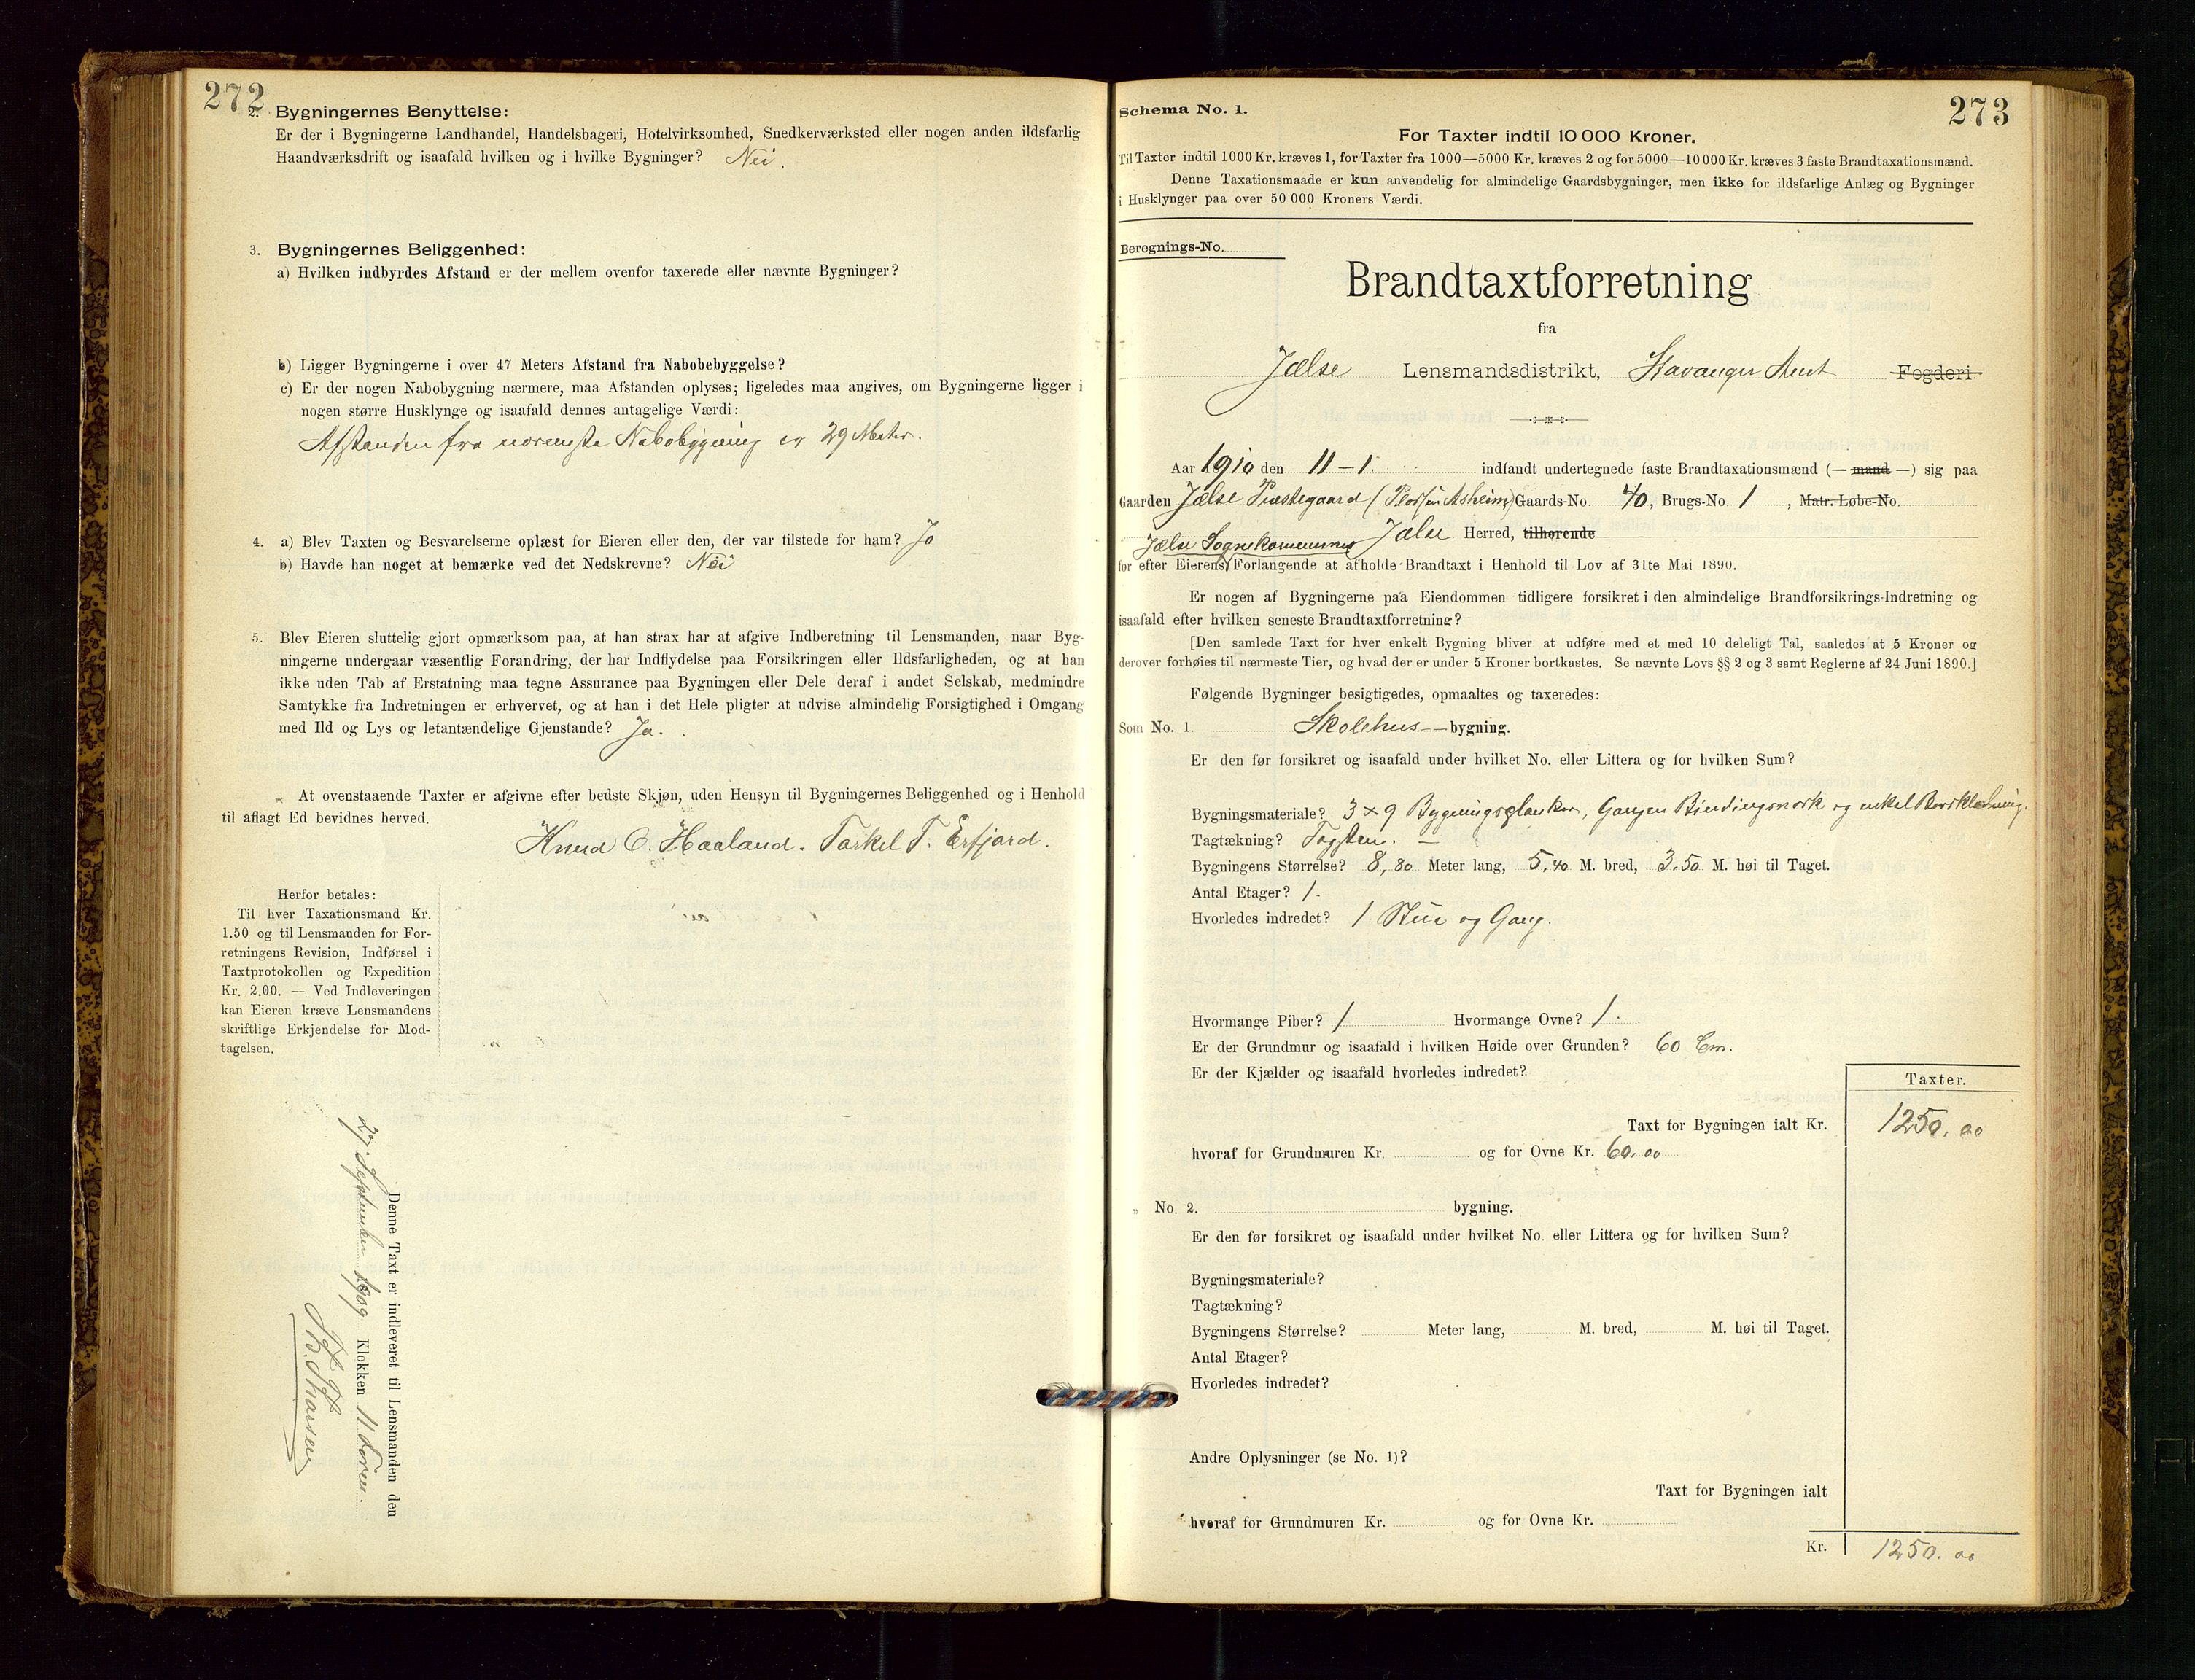 272
2. Bygningernes Benyttelse:
Er der i Bygningerne Landhandel, Handelsbageri, Hotelvirksomhed, Snedkerværksted eller nogen anden ildsfarlig
Haandværksdrift og isaafald hvilken og i hvilke Bygninger? Nei.
3. Bygningernes Beliggenhed:
a) Hvilken indbyrdes Afstand er der mellem ovenfor taxerede eller nævnte Bygninger?
b) Ligger Bygningerne i over 47 Meters Afstand fra Nabobebyggelse?
c) Er der nogen Nabobygning nærmere, maa Afstanden oplyses; ligeledes maa angives, om Bygningerne ligger i
nogen større Husklynge og isaafald dennes antagelige Værdi:
Afstanden fra nærmeste Nabobygning er 29 Meter.
4. a) Blev Taxten og Besvarelserne oplæst for Eieren eller den, der var tilstede for ham? Ja
b) Havde han noget at bemærke ved det Nedskrevne? Nei
5. Blev Eieren sluttelig gjort opmærksom paa, at han strax har at afgive Indberetning til Lensmanden, naar Byg-
ningerne undergaar væsentlig Forandring, der har Indflydelse paa Forsikringen eller Ildsfarligheden, og at han
ikke uden Tab af Erstatning maa tegne Assurance paa Bygningen eller Dele deraf i andet Selskab, medmindre
Samtykke fra Indretningen er erhvervet, og at han i det Hele pligter at udvise almindelig Forsigtighed i Omgang
med Ild og Lys og letantændelige Gjenstande? Ja.
At ovenstaaende Taxter er afgivne efter bedste Skjøn, uden Hensyn til Bygningernes Beliggenhed og i Henhold
til aflagt Ed bevidnes herved.
Knud O. Haaland. Torkel T. Erfjord.
Herfor betales:
Til hver Taxationsmand Kr.
1.50 og til Lensmanden for For-
retningens Revision, Indførsel i
Taxtprotokollen og Expedition
Kr. 2.00. — Ved Indleveringen
kan Eieren kræve Lensmandens
skriftlige Erkjendelse for Mod-
tagelsen.
Denne Taxt er indleveret til Lensmanden den
27 September 1909 Klokken 11 Form.
273
Schema No. 1.
For Taxter indtil 10 000 Kroner.
Til Taxter indtil 1000 Kr. kræves 1, for Taxter fra 1000—5000 Kr. kræves 2 og for 5000—10 000 Kr. kræves 3 faste Brandtaxationsmænd.
Denne Taxationsmaade er kun anvendelig for almindelige Gaardsbygninger, men ikke for ildsfarlige Anlæg og Bygninger
i Husklynger paa over 50 000 Kroners Værdi.
Beregnings-No.
Brandtaxtforretning
fra
Jælse Lensmandsdistrikt, Stavanger Amt Fogderi.
Aar 1910 den 11-1. indfandt undertegnede faste Brandtaxationsmænd (— mand —) sig paa
Gaarden Jælse Præstegaard ( Asheim) Gaards-No. 40, Brugs-No. 1, Matr.-Løbe-No.
Jælse Sognekommunes Jælse Herred, tilhørende
for efter Eierens Forlangende at afholde Brandtaxt i Henhold til Lov af 31te Mai 1890.
Er nogen af Bygningerne paa Eiendommen tidligere forsikret i den almindelige Brandforsikrings-Indretning og
isaafald efter hvilken seneste Brandtaxtforretning?
[Den samlede Taxt for hver enkelt Bygning bliver at udføre med et med 10 deleligt Tal, saaledes at 5 Kroner og
derover forhøies til nærmeste Tier, og hvad der er under 5 Kroner bortkastes. Se nævnte Lovs §§ 2 og 3 samt Reglerne af 24 Juni 1890.]
Følgende Bygninger besigtigedes, opmaaltes og taxeredes:
Som No. 1. Skolehus — bygning.
Er den før forsikret og isaafald under hvilket No. eller Littera og for hvilken Sum?
Bygningsmateriale? 3 x 9 Bygningsplanker, Gangen Bindingsværk og enkel Bordklædning.
Tagtækning? Tagsten. —
Bygningens Størrelse? 8,80 Meter lang, 5,40 M. bred, 3.50 M. høi til Taget.
Antal Etager? 1.
Hvorledes indredet? 1 Stue og Gang.
Hvormange Piber? 1 Hvormange Ovne? 1.
Er der Grundmur og isaafald i hvilken Høide over Grunden? 60 Cm.
Er der Kjælder og isaafald hvorledes indredet?
Taxter.
Taxt for Bygningen ialt Kr. 1250.00
hvoraf for Grundmuren Kr. og for Ovne Kr. 60.00
„ No. 2. bygning.
Er den før forsikret og isaafald under hvilket No. eller Littera og for hvilken Sum?
Bygningsmateriale?
Tagtækning?
Bygningens Størrelse? Meter lang, M. bred, M. høi til Taget.
Antal Etager?
Hvorledes indredet?
Andre Oplysninger (se No. 1)?
Taxt for Bygningen ialt
hvoraf for Grundmuren Kr. og for Ovne Kr.
Kr. 1250.00